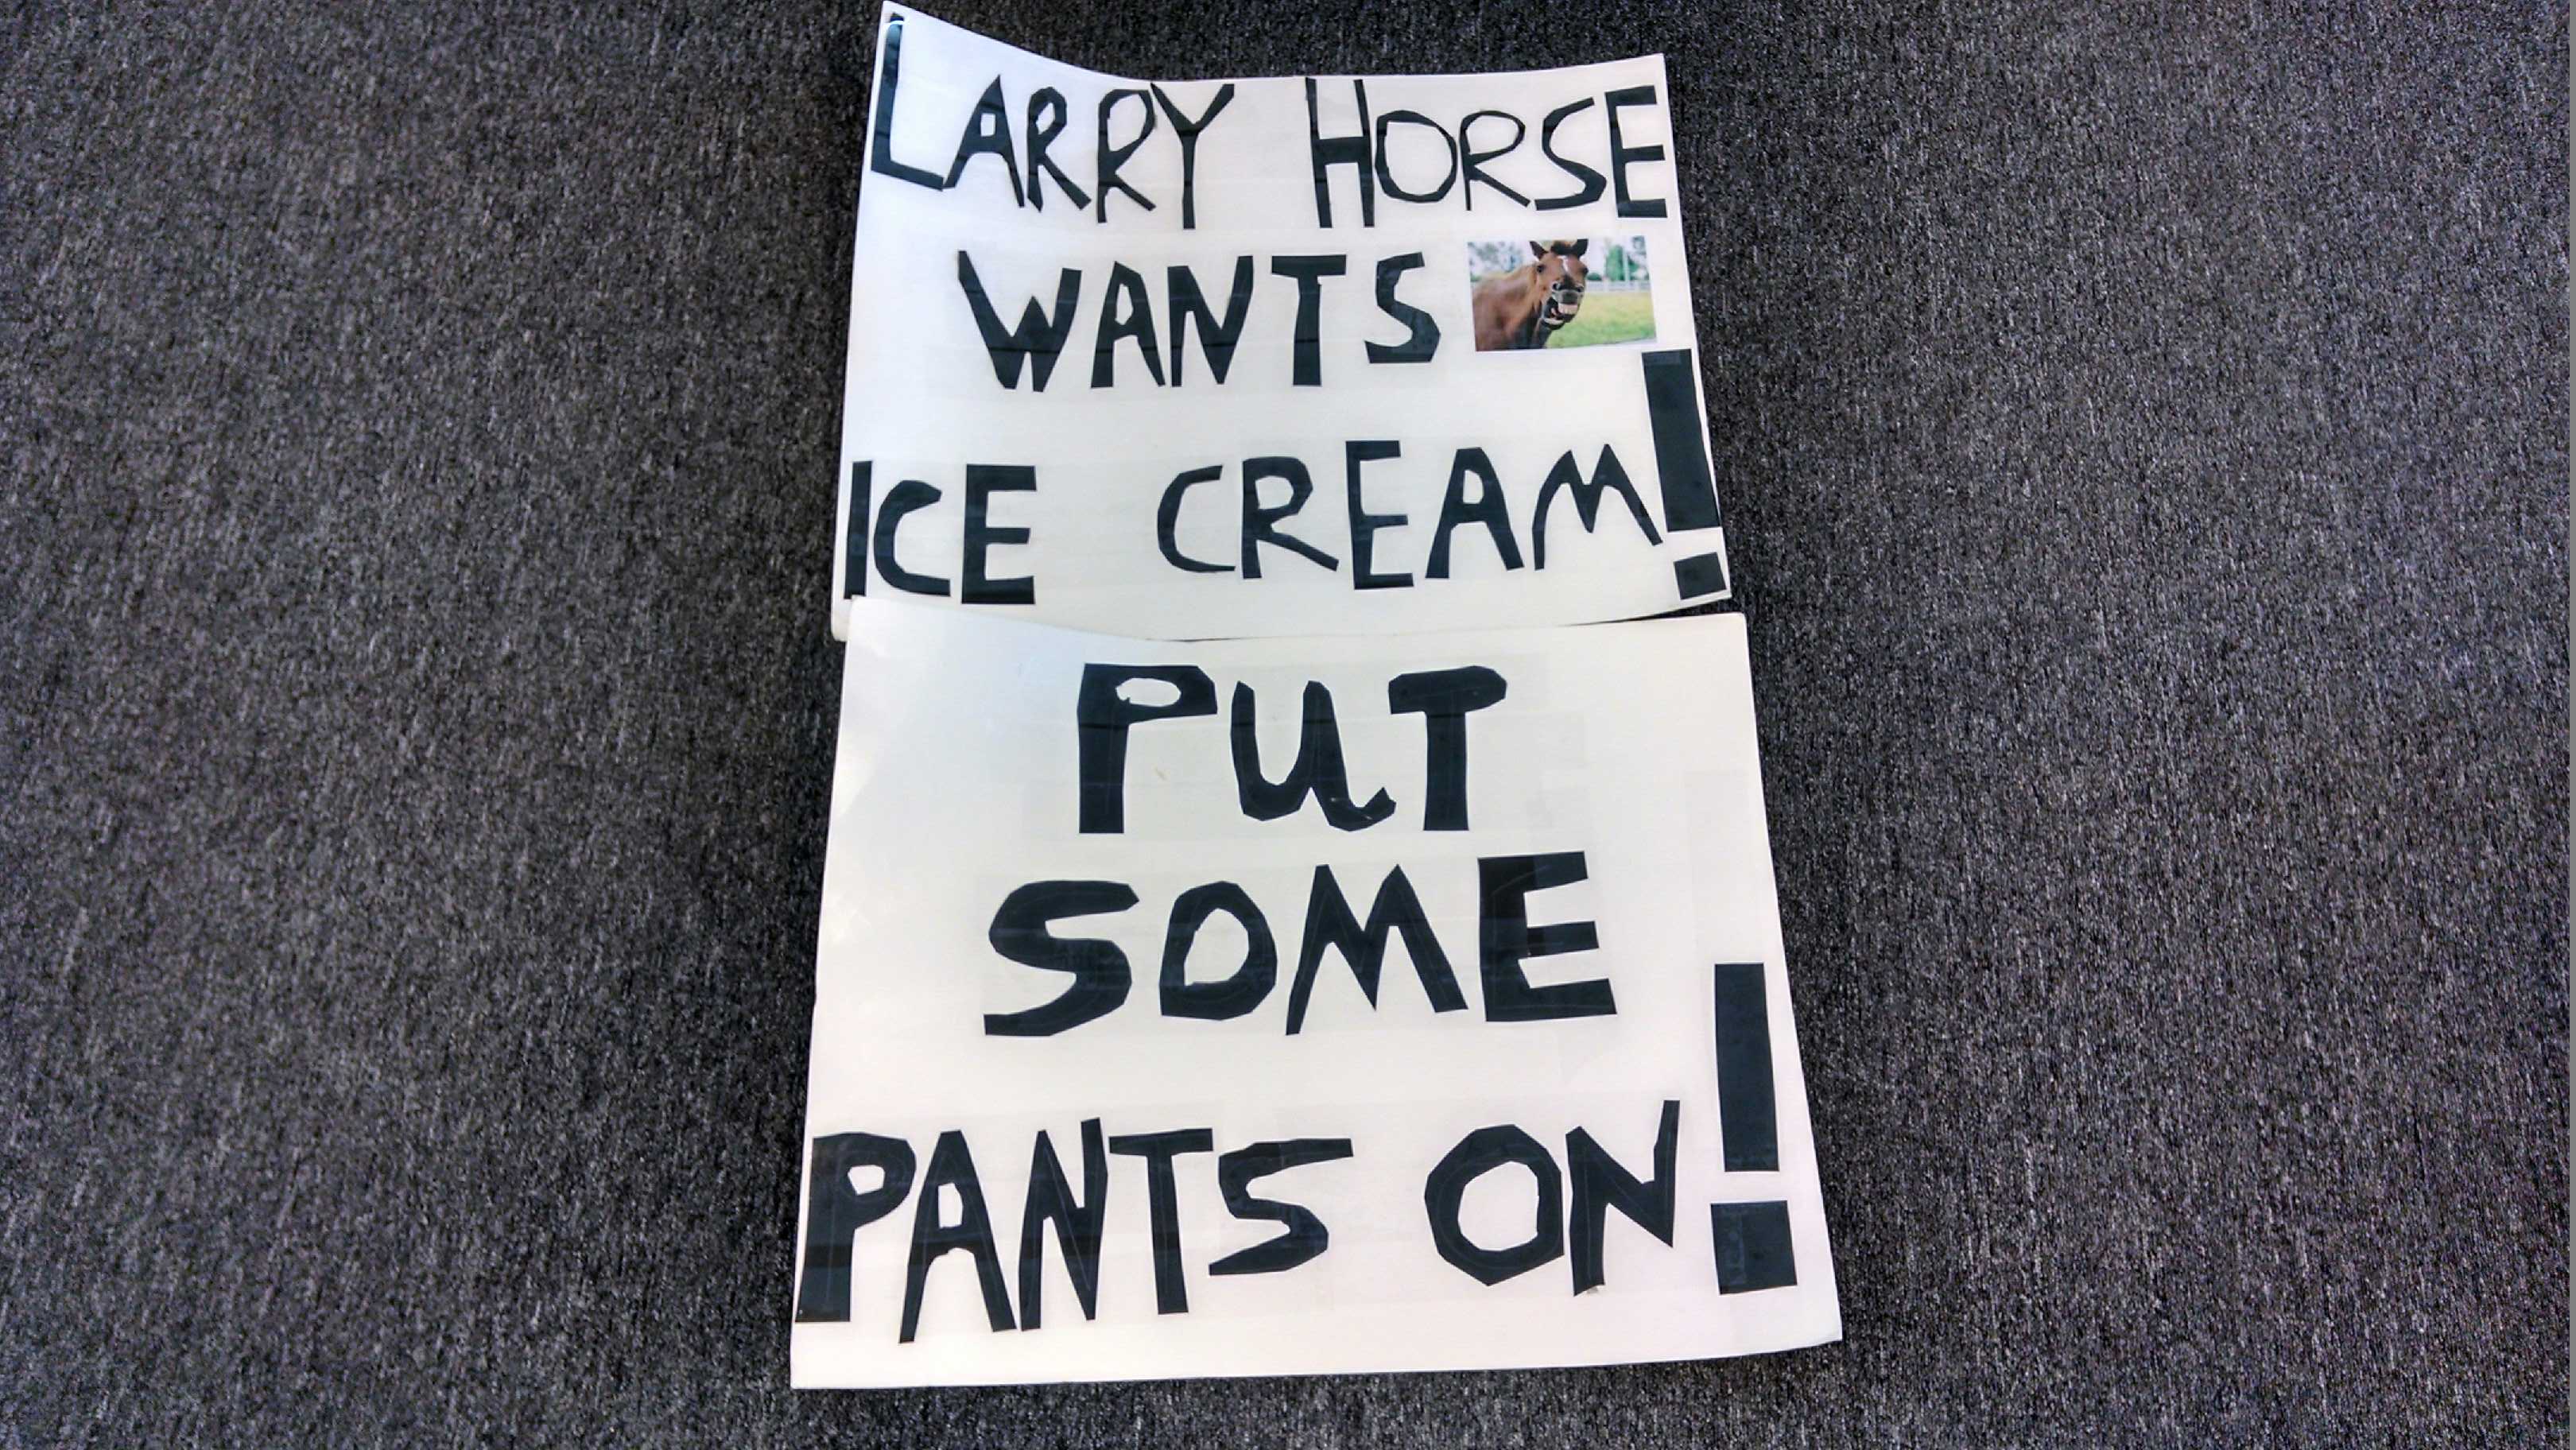 LARRY HORSE
WANTS
ICE CREAM!
PUT
SOME
PANTS ON!